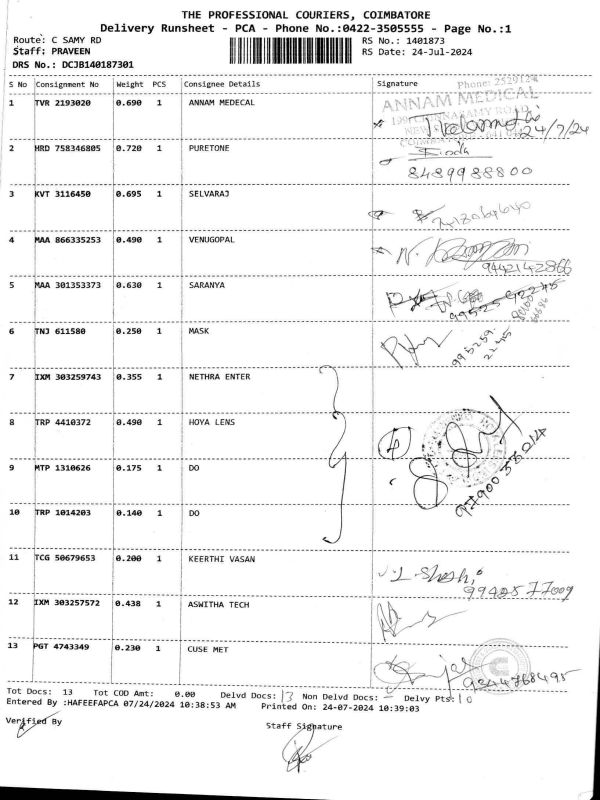 THE PROFESSIONAL COURIERS, COIMBATORE
Delivery Runsheet - PCA - Phone No.:0422-3505555 - Page No.:1
Route: C SAMY RD
Staff: PRAVEEN
DRS No.: DCJB140187301
RS No.: 1401873
RS Date: 24-Jul-2024
S No Consignment No Weight PCS Consignee Details Signature
Phone: 2529124
ANNAM MEDICAL
1 TVR 2193020 0.690 1 ANNAM MEDECAL
24/7/24
2 HRD 758346805 0.720 1 PURETONE
8489988800
3 KVT 3116450 0.695 1 SELVARAJ
4 MAA 866335253 0.490 1 VENUGOPAL
9442142866
5 MAA 301353373 0.630 1 SARANYA
6 TNJ 611580 0.250 1 MASK
995259
2245
7 IXM 303259743 0.355 1 NETHRA ENTER
8 TRP 4410372 0.490 1 HOYA LENS
4
9 MTP 1310626 0.175 1 DO
10 TRP 1014203 0.140 1 DO
11 TCG 50679653 0.200 1 KEERTHI VASAN
9940577009
12 IXM 303257572 0.438 1 ASWITHA TECH
13 PGT 4743349 0.230 1 CUSE MET
9244768495
Tot Docs: 13 Tot COD Amt: 0.00 Delvd Docs: 13 Non Delvd Docs: - Delvy Pts: 10
Entered By :HAFEEFAPCA 07/24/2024 10:38:53 AM Printed On: 24-07-2024 10:39:03
Verified By
Staff Signature